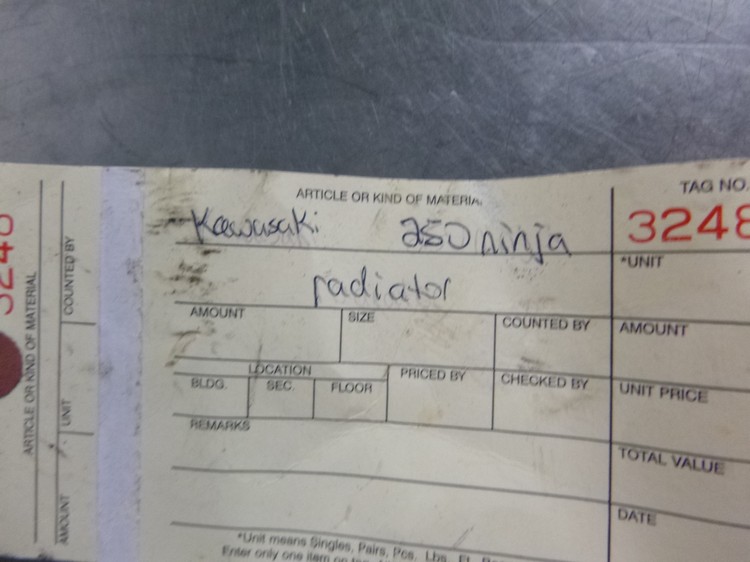 ARTICLE OR KIND OF MATERIAL
TAG NO.
Kawasaki 250 ninja
3248
*UNIT
radiator
AMOUNT
SIZE
COUNTED BY
AMOUNT
LOCATION
BLDG.
SEC.
FLOOR
PRICED BY
CHECKED BY
UNIT PRICE
REMARKS
TOTAL VALUE
DATE
*Unit means Singles, Pairs, Pcs. Lbs. Ft.
Enter only one item on
ARTICLE OR KIND OF MATERIAL
COUNTED BY
UNIT
AMOUNT